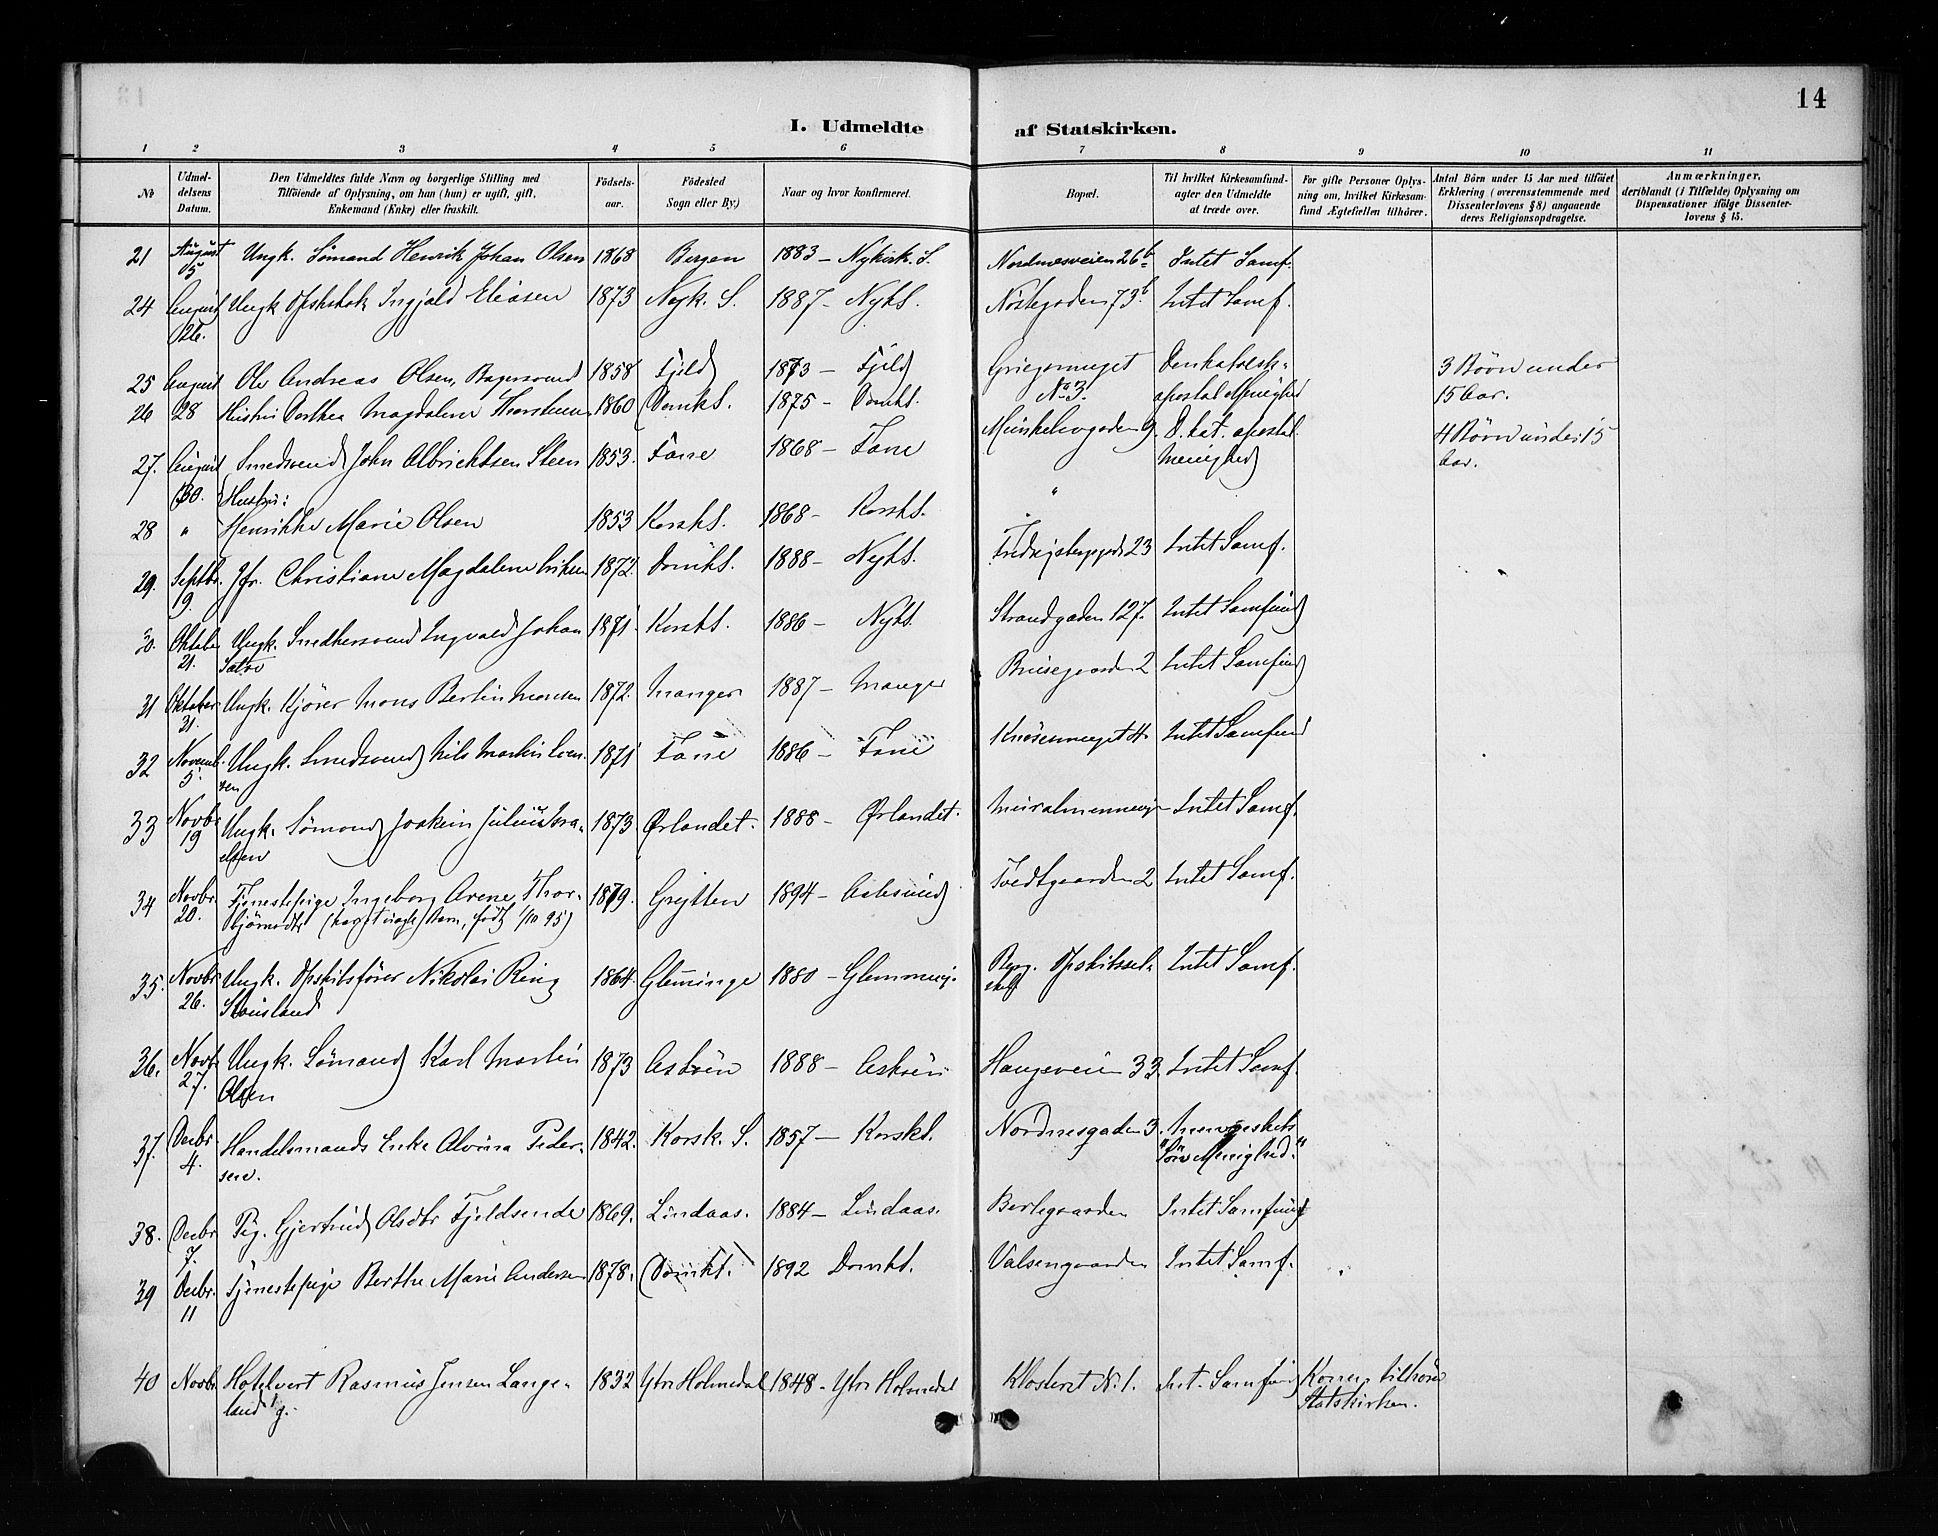 14
I. Udmeldte af Statskirken.
1 2 3 4 5 6 7 8 9 10 11
No
Udmeldelsens Datum.
Den Udmeldtes fulde Navn og borgerlige Stilling med
Tilföiende af Oplysning, om han (hun) er ugift, gift,
Enkemand (Enke) eller fraskilt.
Födselsaar.
Födested
Sogn eller By.)
Naar og hvor konfirmeret.
Bopæl.
Til hvilket Kirkesamfund
agter den Udmeldte
at træde over.
For gifte Personer Oplys-
ning om, hvilket Kirkesam-
fund Ægtefællen tilhörer.
Antal Börn under 15 Aar med tilföiet
Erklæring (overensstemmende med
Dissenterlovens § 8) angaaende
deres Religionsopdragelse.
Anmærkninger,
deriblandt (i Tilfælde) Oplysning om
Dispensationer ifölge Dissenter-
lovens § 15.
21 August 5 Ungk. Sömand Henrik Johan Olsen 1868 Bergen 1883 – Nykirk. S. Nordnesveien 26 b Intet Samf.
24 August 26. Ungk. Ingjald Eliasen 1873 Nyk. S. 1887 – NykS. Nöstegaden 73 b Intet Samf.
25 August Ole Andreas Olsen, Bagersvend 1858 Fjeld 1873 – Fjeld Griegsmuget No 3. Den katolsk- apostol. Menighed 3 Börn under 15 Aar.
26 28 Hustru Dorthea Magdalene Thorstensen 1860 DomkS. 1875 – Domks.
27. August 30. Smedsvend John Albrichtsen Steen 1853. Fane 1868 – Fane Munkelivgaden 9. D. kat. apostol. Menighed 4 Börn under 15 Aar.
Hustru:
28 " Henrikke Marie Olsen 1853 KorskS. 1868 – KorskS. "
29. Septbr. 19. Jfr. Christiane Magdalene Eriksen 1872. DomkS. 1888 – NykS. 23 Intet Samf.
30. Oktober 21. Ungk. Ingvald Johan Satre 1871. KorskS. 1886 – NykS. Strandgaden 127. Intet Samfund
31 Oktober 31. Ungk. Kjörer Mons Bertin Monsen 1872. Manger 1887 – Manger 2 Intet Samfund
32 Novemb. 5. Ungk. Smedsvend Nils Martin Iversen 1871 Fane 1886 – Fane 4. Intet Samfund
33 Novbr 19 Ungk. Sömand Joakim Julius Israelsen 1873. Ørlandet. 1888 – Ørlandet. Muralmenning Intet Samf.
34 Novbr. 20. Tjenestepige Ingeborg Arene Thorbjörnsdtr 1879. Grytten 1894 – Aalesund Tvedtgaarden 2 Intet Samf.
35. Novbr 26. Ungk. Nikolai Ring Stousland 1864. Glemminge 1880 – Glemming. Intet Samf.
36. Novbr 27. Ungk. Sömand Karl Martin Olsen 1873 Asköen 1888 – Asköen Haugeveien 33. Intet Samf.
37. Decbr 4. Handelsmands Enke Alvina Pedersen. 1842. Korsk. S. 1857 – Korsks. Nordnesgaden 3. Menneskets "Söns Menighed."
38. Decbr 7. Pig. Gjertrud Olsdtr Fjeldsende 1869. Lindaas. 1884 – Lindaas. Intet Samfund
39 Decbr. 11 Tjenestepige Berthe Marie Andersen 1878. Domks. 1892 Domks. Valsengaarden Intet Samf.
40 Novbr. Hotelvert Rasmus Jensen Langeland g. 1832 Ytre Holmedal 1848 – Ytre Holmedal Klosteret N. 1. Int. Samfund Konen tilhörer Statskirken.